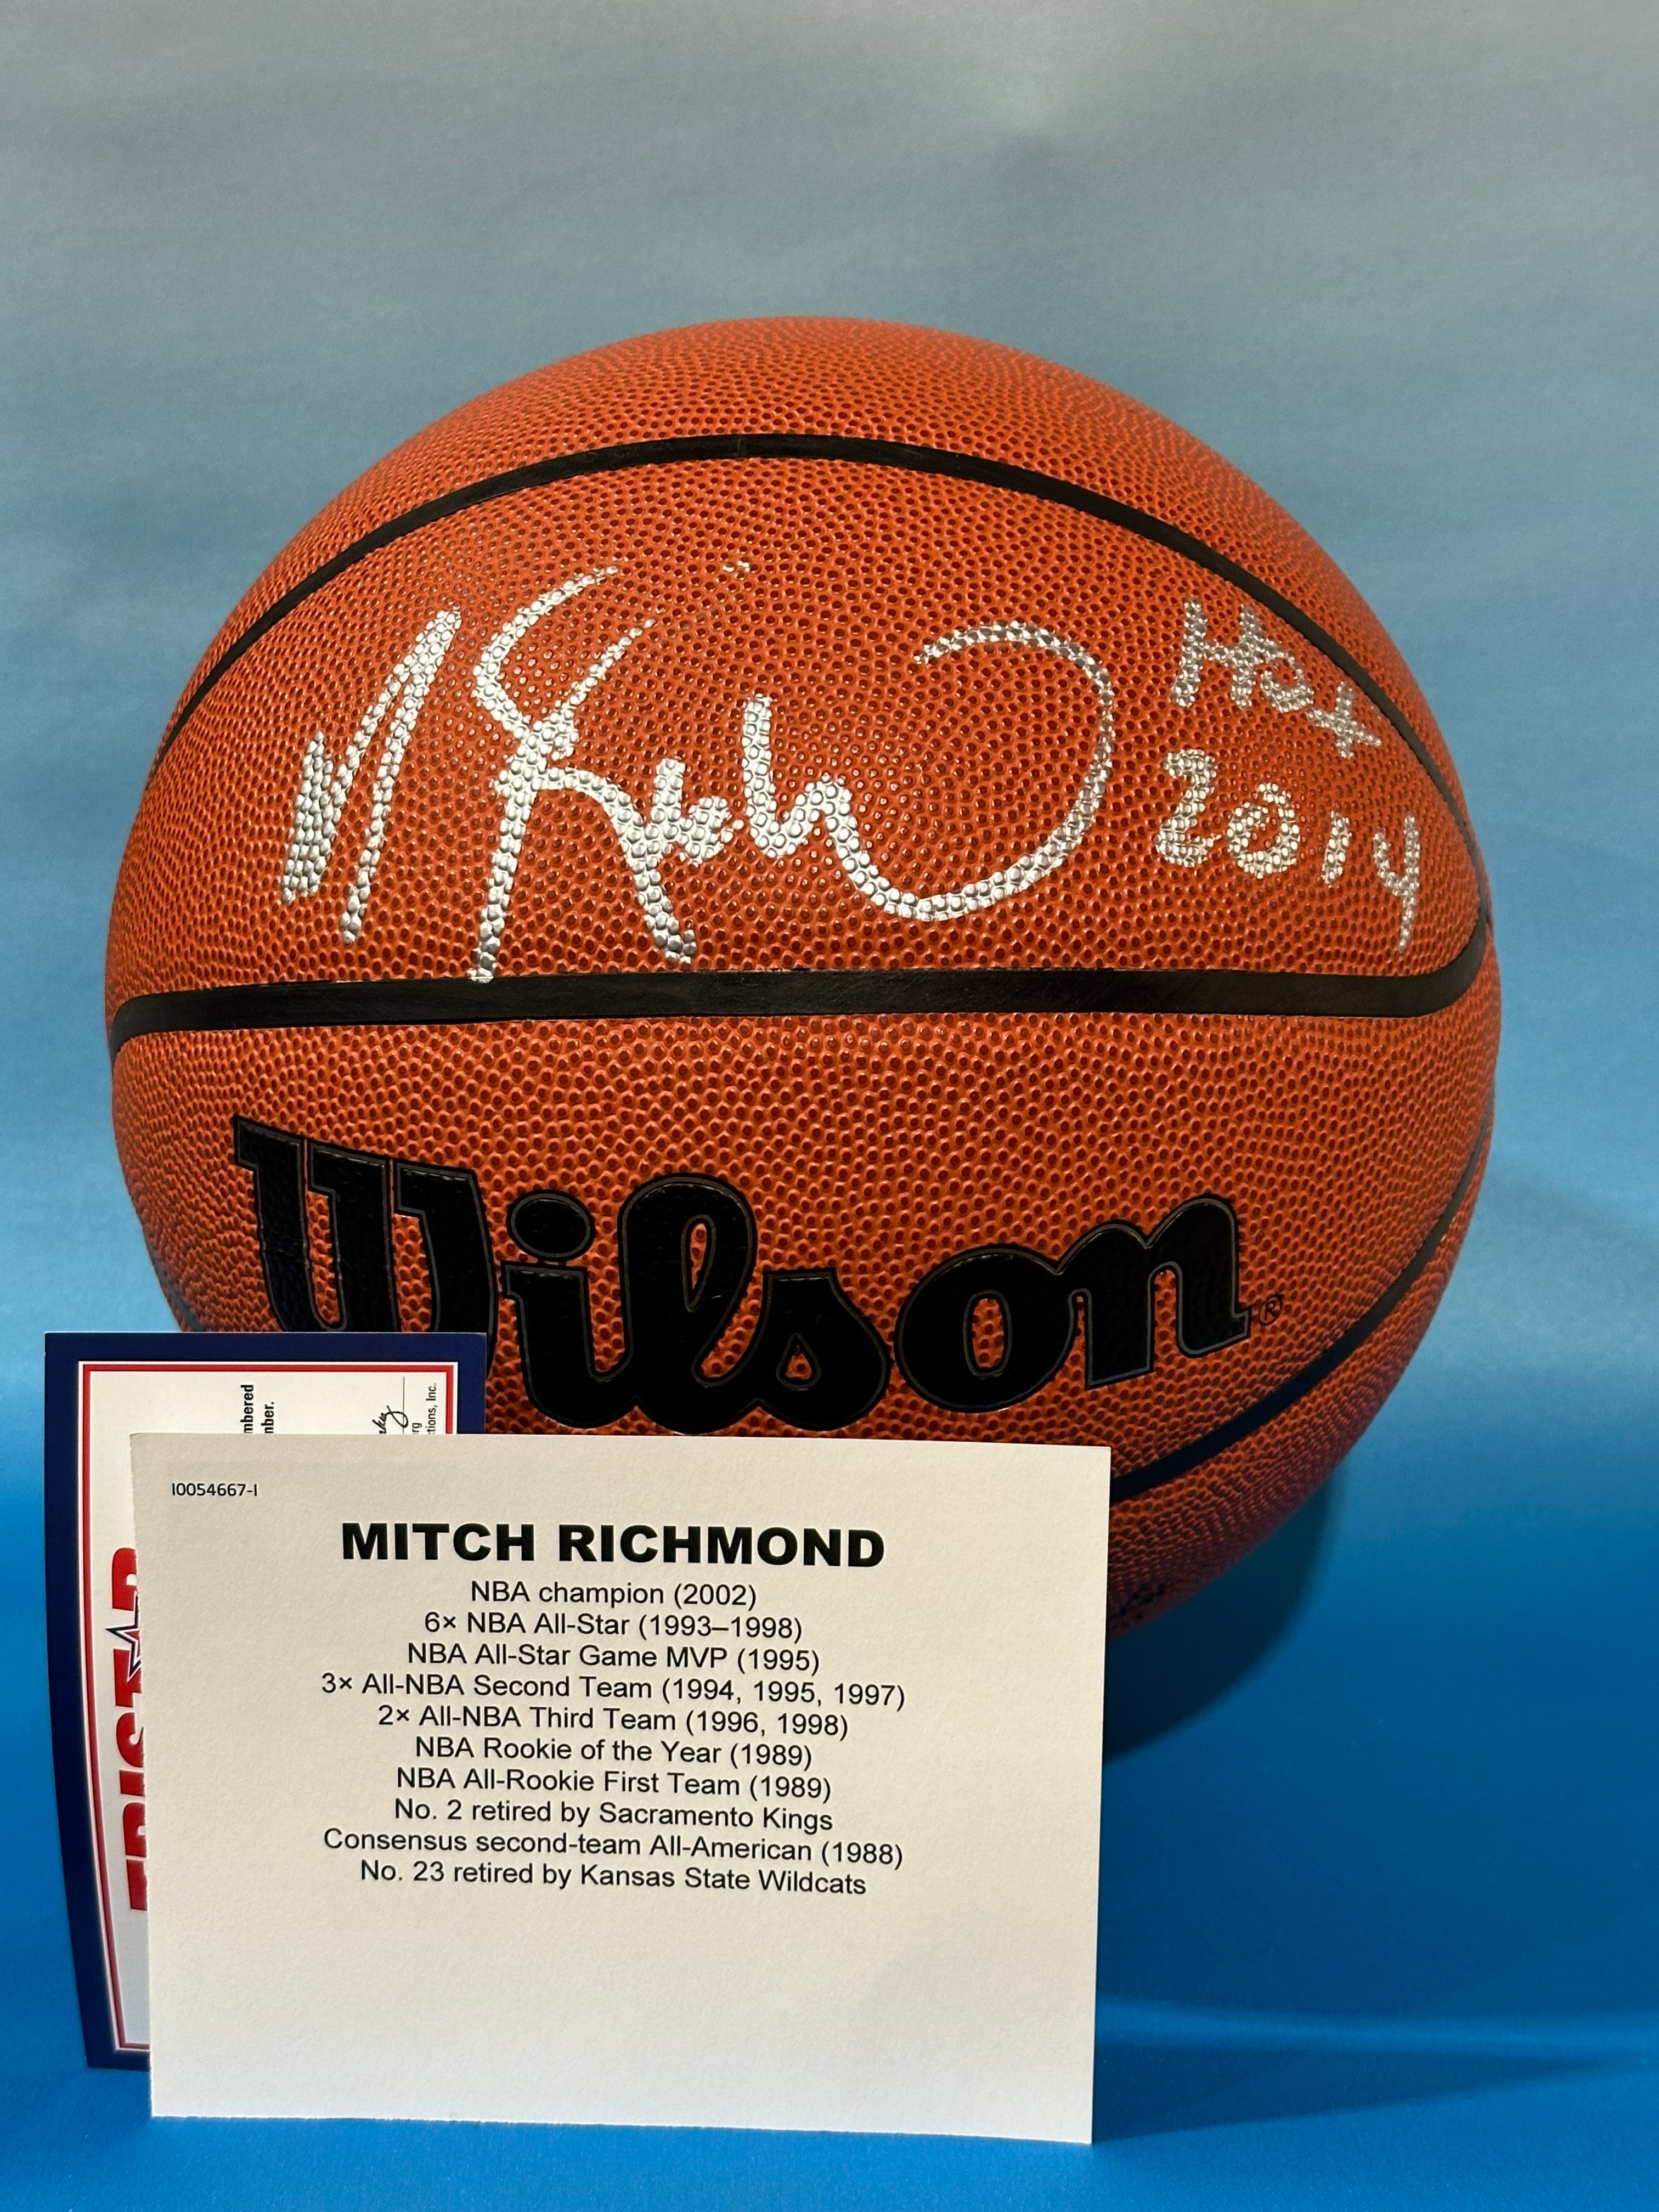 M Richmond
HOF
2014
Wilson®
mbered
mber.
tions, Inc.
TRISTAR
I0054667-I
MITCH RICHMOND
NBA champion (2002)
6× NBA All-Star (1993–1998)
NBA All-Star Game MVP (1995)
3× All-NBA Second Team (1994, 1995, 1997)
2× All-NBA Third Team (1996, 1998)
NBA Rookie of the Year (1989)
NBA All-Rookie First Team (1989)
No. 2 retired by Sacramento Kings
Consensus second-team All-American (1988)
No. 23 retired by Kansas State Wildcats